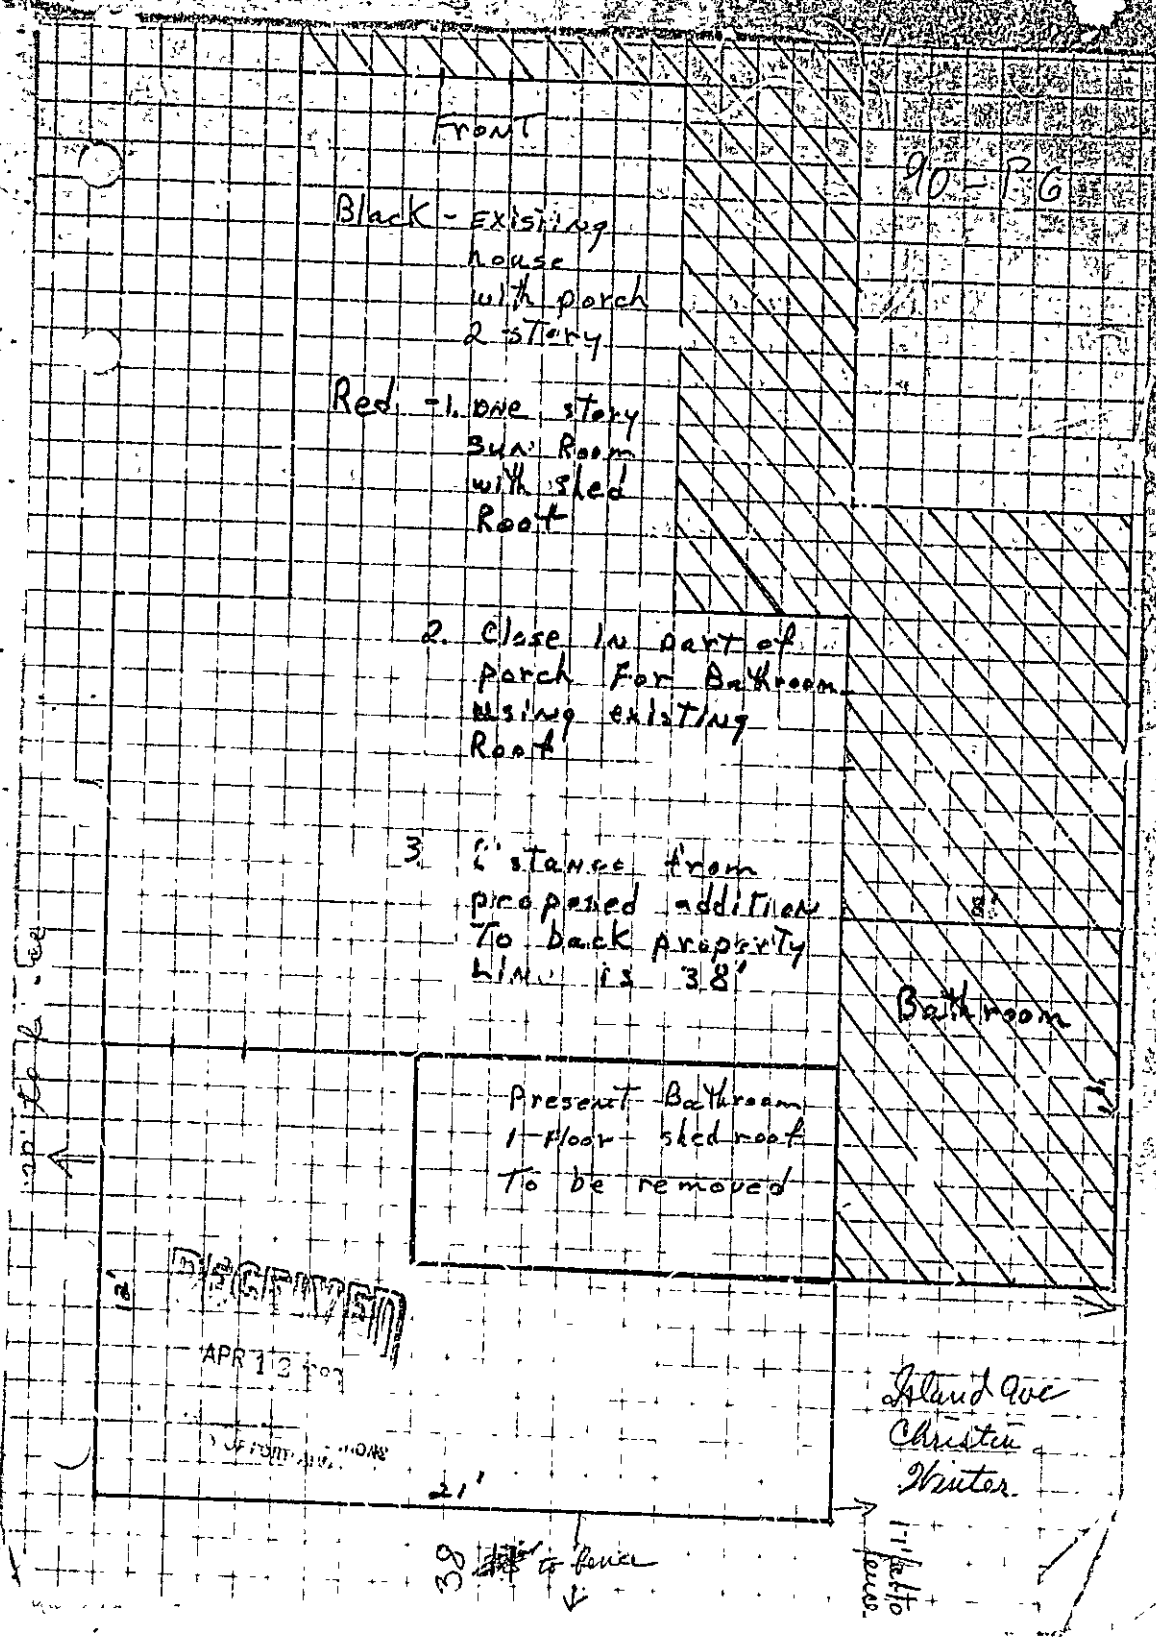 Front
90-P6
Black - existing
house
with porch
2 story
Red -1. one story
Sun Room
with shed
Roof
2. Close in part of
porch For Bathroom
using existing
Roof
3. from
proposed addition
To back property
is 38'
Bathroom
Present Bathroom
1 Floor shed roof
To be removed
12'
RECEIVED
APR 12
Island Ave
Winter.
21'
38 to fence
fence.